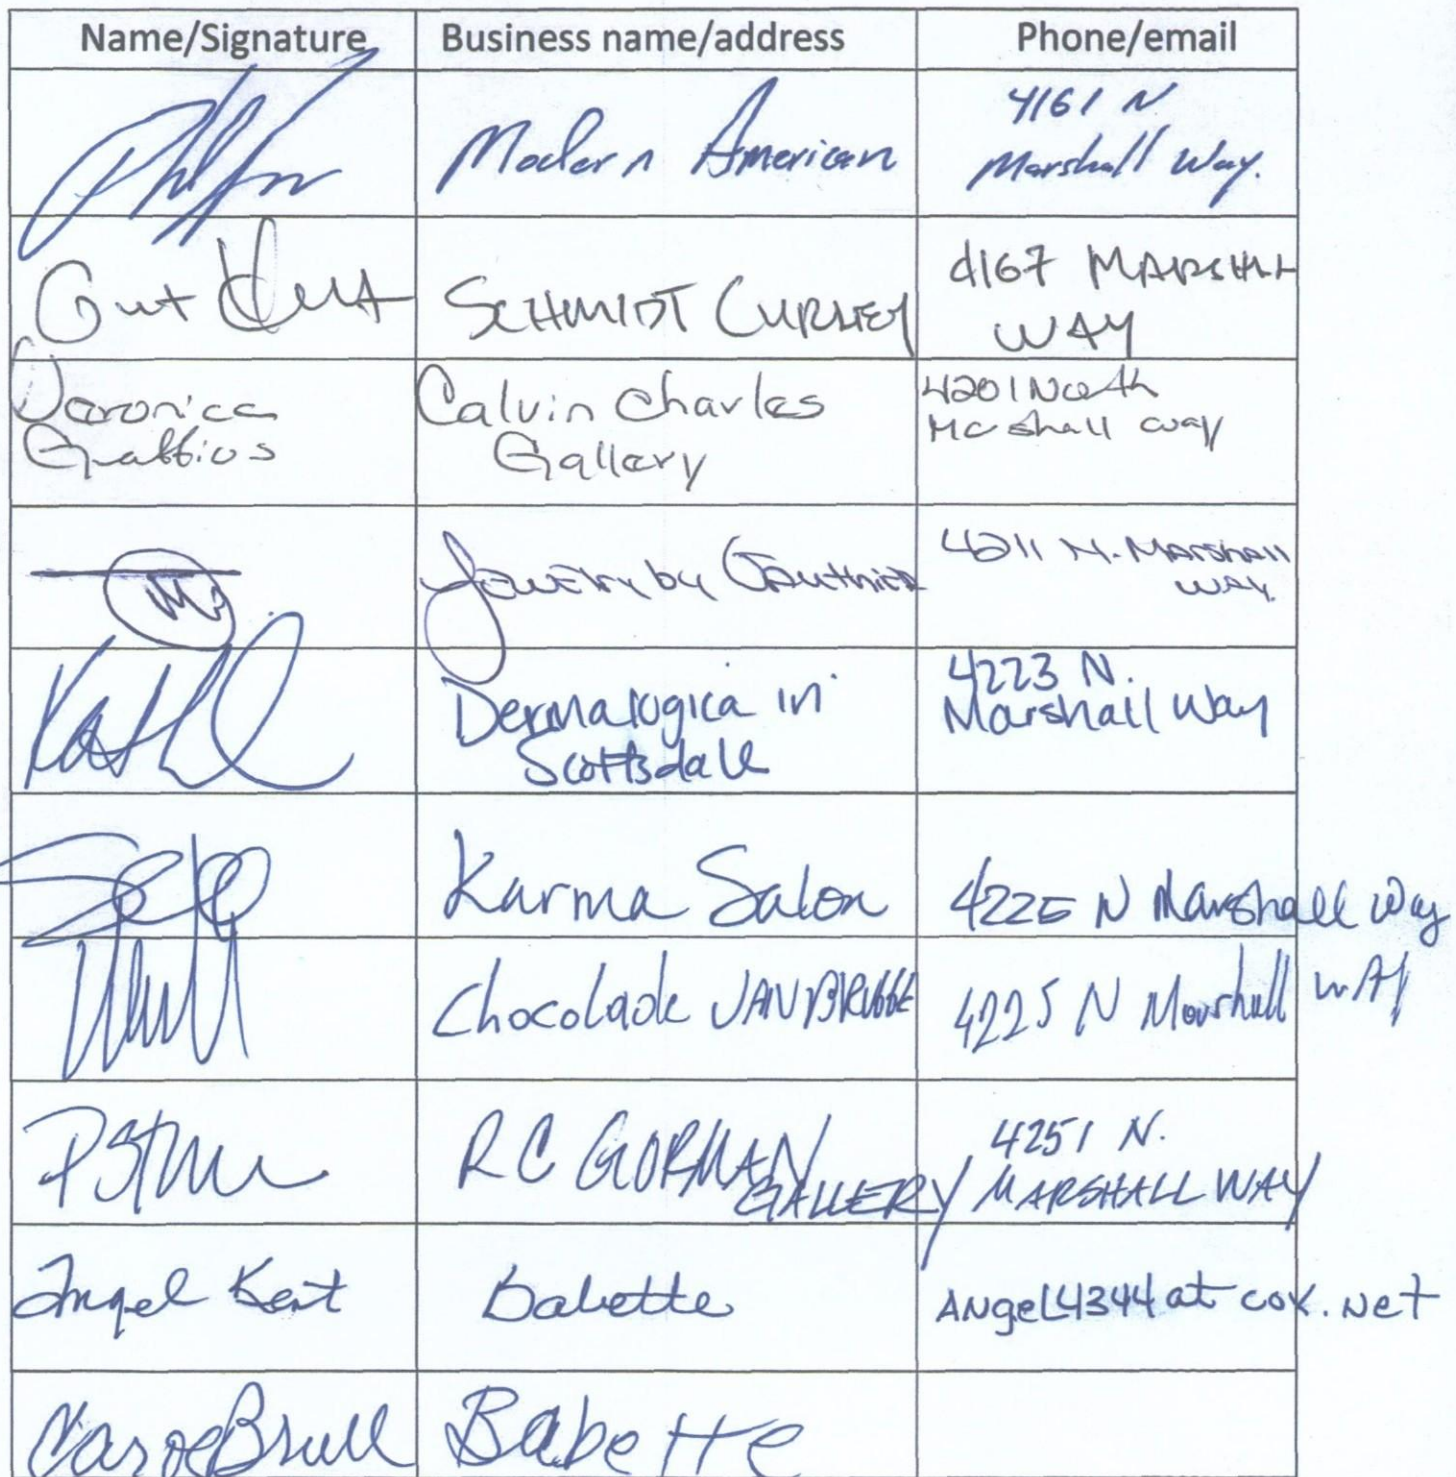 Name/Signature Business name/address Phone/email
Modern American 4161 N
Marshall Way.
SCHMIDT CURLEY 4167 MARSHALL
WAY
Veronica Calvin Charles 4201 North
Gallery Marshall way
Jewelry by Gauthier 4211 N. Marshall
WAY
Dermalogica in 4223 N.
Scottsdale Marshall Way
Karma Salon 4225 N Marshall Way
Chocolade VAN BRUGGE 4225 N Marshall WAY
RC GORMAN 4251 N.
GALLERY MARSHALL WAY
Angel Kent Babette ANgeL4344 at cox.Net
Brull Babette